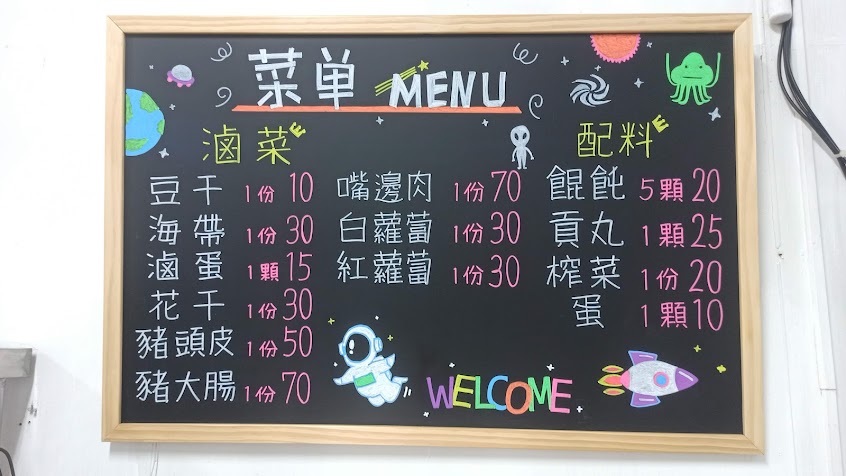 菜单 MENU
滷菜E
豆干 1份 10
海帶 1份 30
滷蛋 1顆 15
花干 1份 30
豬頭皮 1份 50
豬大腸 1份 70
嘴邊肉 1份 70
白蘿蔔 1份 30
紅蘿蔔 1份 30
配料E
餛飩 5顆 20
貢丸 1顆 25
榨菜 1份 20
蛋 1顆 10
WELCOME